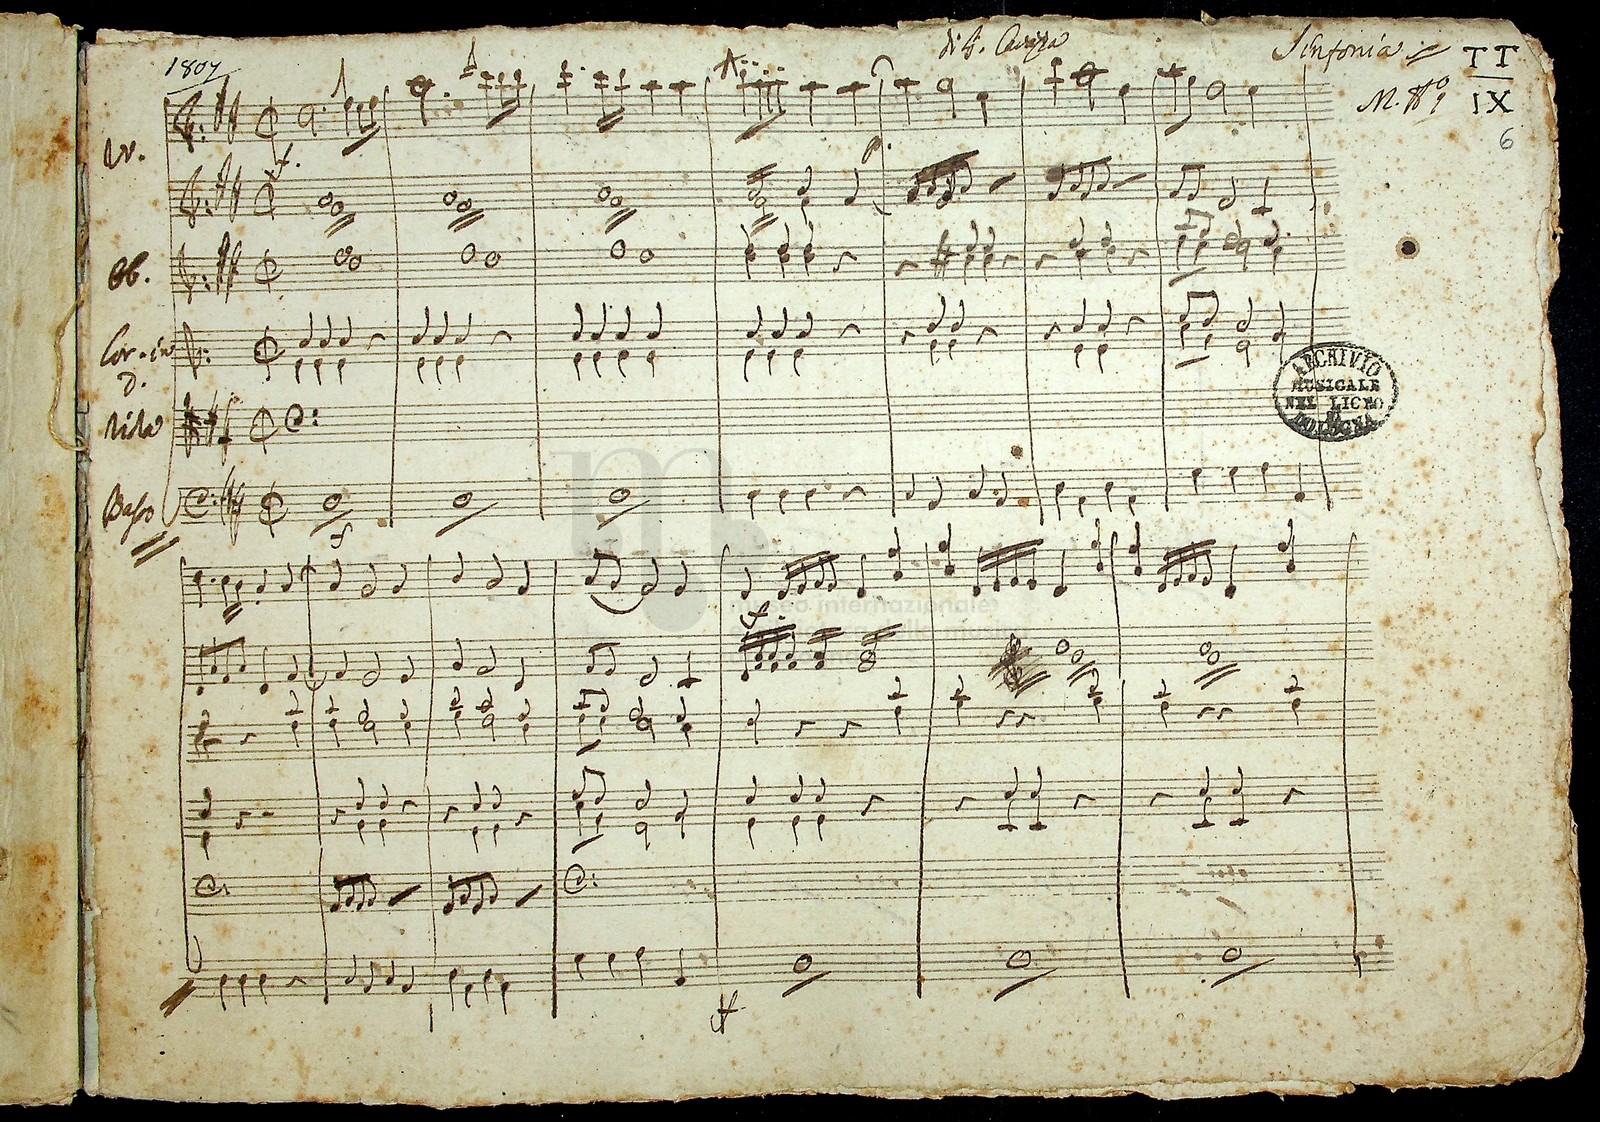 1807
di G. Cavazza
Sinfonia
TT
IX
6
M. No 1
VV.
f.
p.
Ob.
Cor. in
D.
Viola
ARCHIVIO
MUSICALE
NEL LICEO
DI
BOLOGNA
Basso
f
museo internazionale
della musica
f